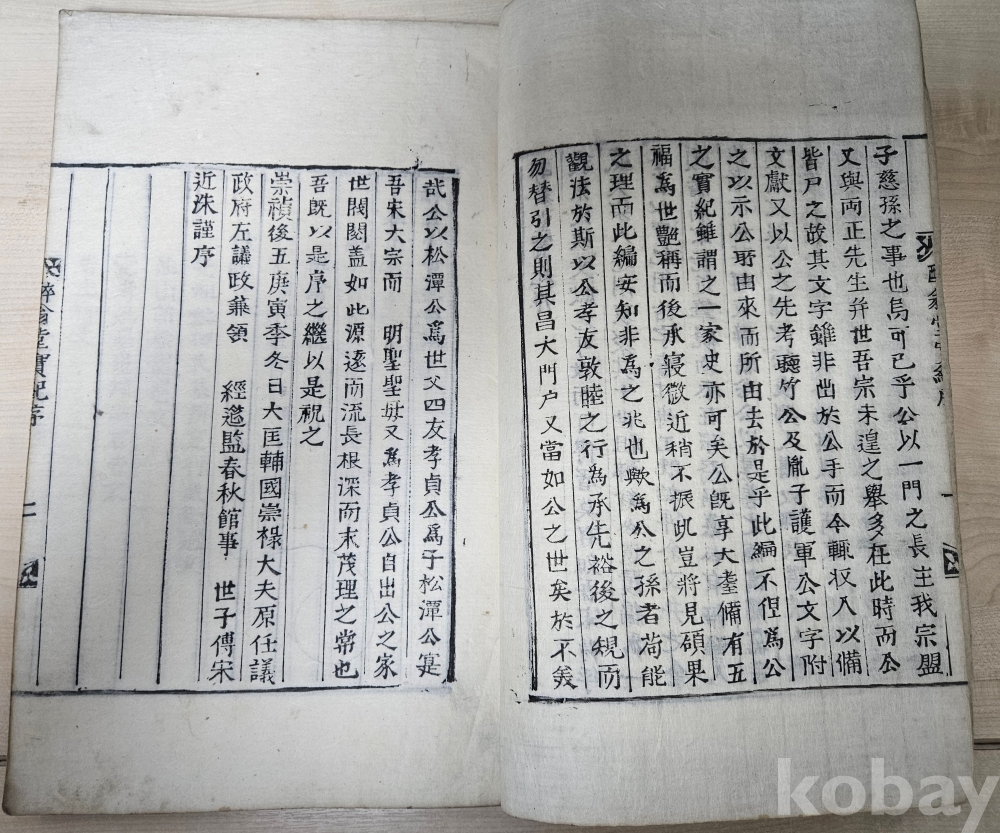 子慈孫之事也烏可已乎公以一門之長主我宗盟
又與両正先生幷世吾宗未遑之舉多在此時而公
皆尸之故其文字雖非出於公手而今輒收入以備
文獻又以公之先考聽竹公及胤子護軍公文字附
之以示公所由來而所由去於是乎此編不但爲公
之實紀雖謂之一家史亦可矣公旣享大耋備有五
福爲世艶稱而後承寢微近稍不振此豈將見碩果
之理而此編安知非爲之兆也歟爲公之孫者苟能
觀法於斯以公孝友敦睦之行爲承先裕後之規而
勿替引之則其昌大門户又當如公之世矣於不羙
哉公以松潭公爲世父四友孝貞公爲子松潭公寔
吾宋大宗而 明聖聖母又爲孝貞公自出公之家
世閥閱盖如此源遠而流長根深而末茂理之常也
吾旣以是序之繼以是祝之
崇禎後五庚寅季冬日大匡輔國崇祿大夫原任議
政府左議政兼領 經筵監春秋館事 世子傅宋
近洙謹序
醉翁堂實紀序
二
kobay